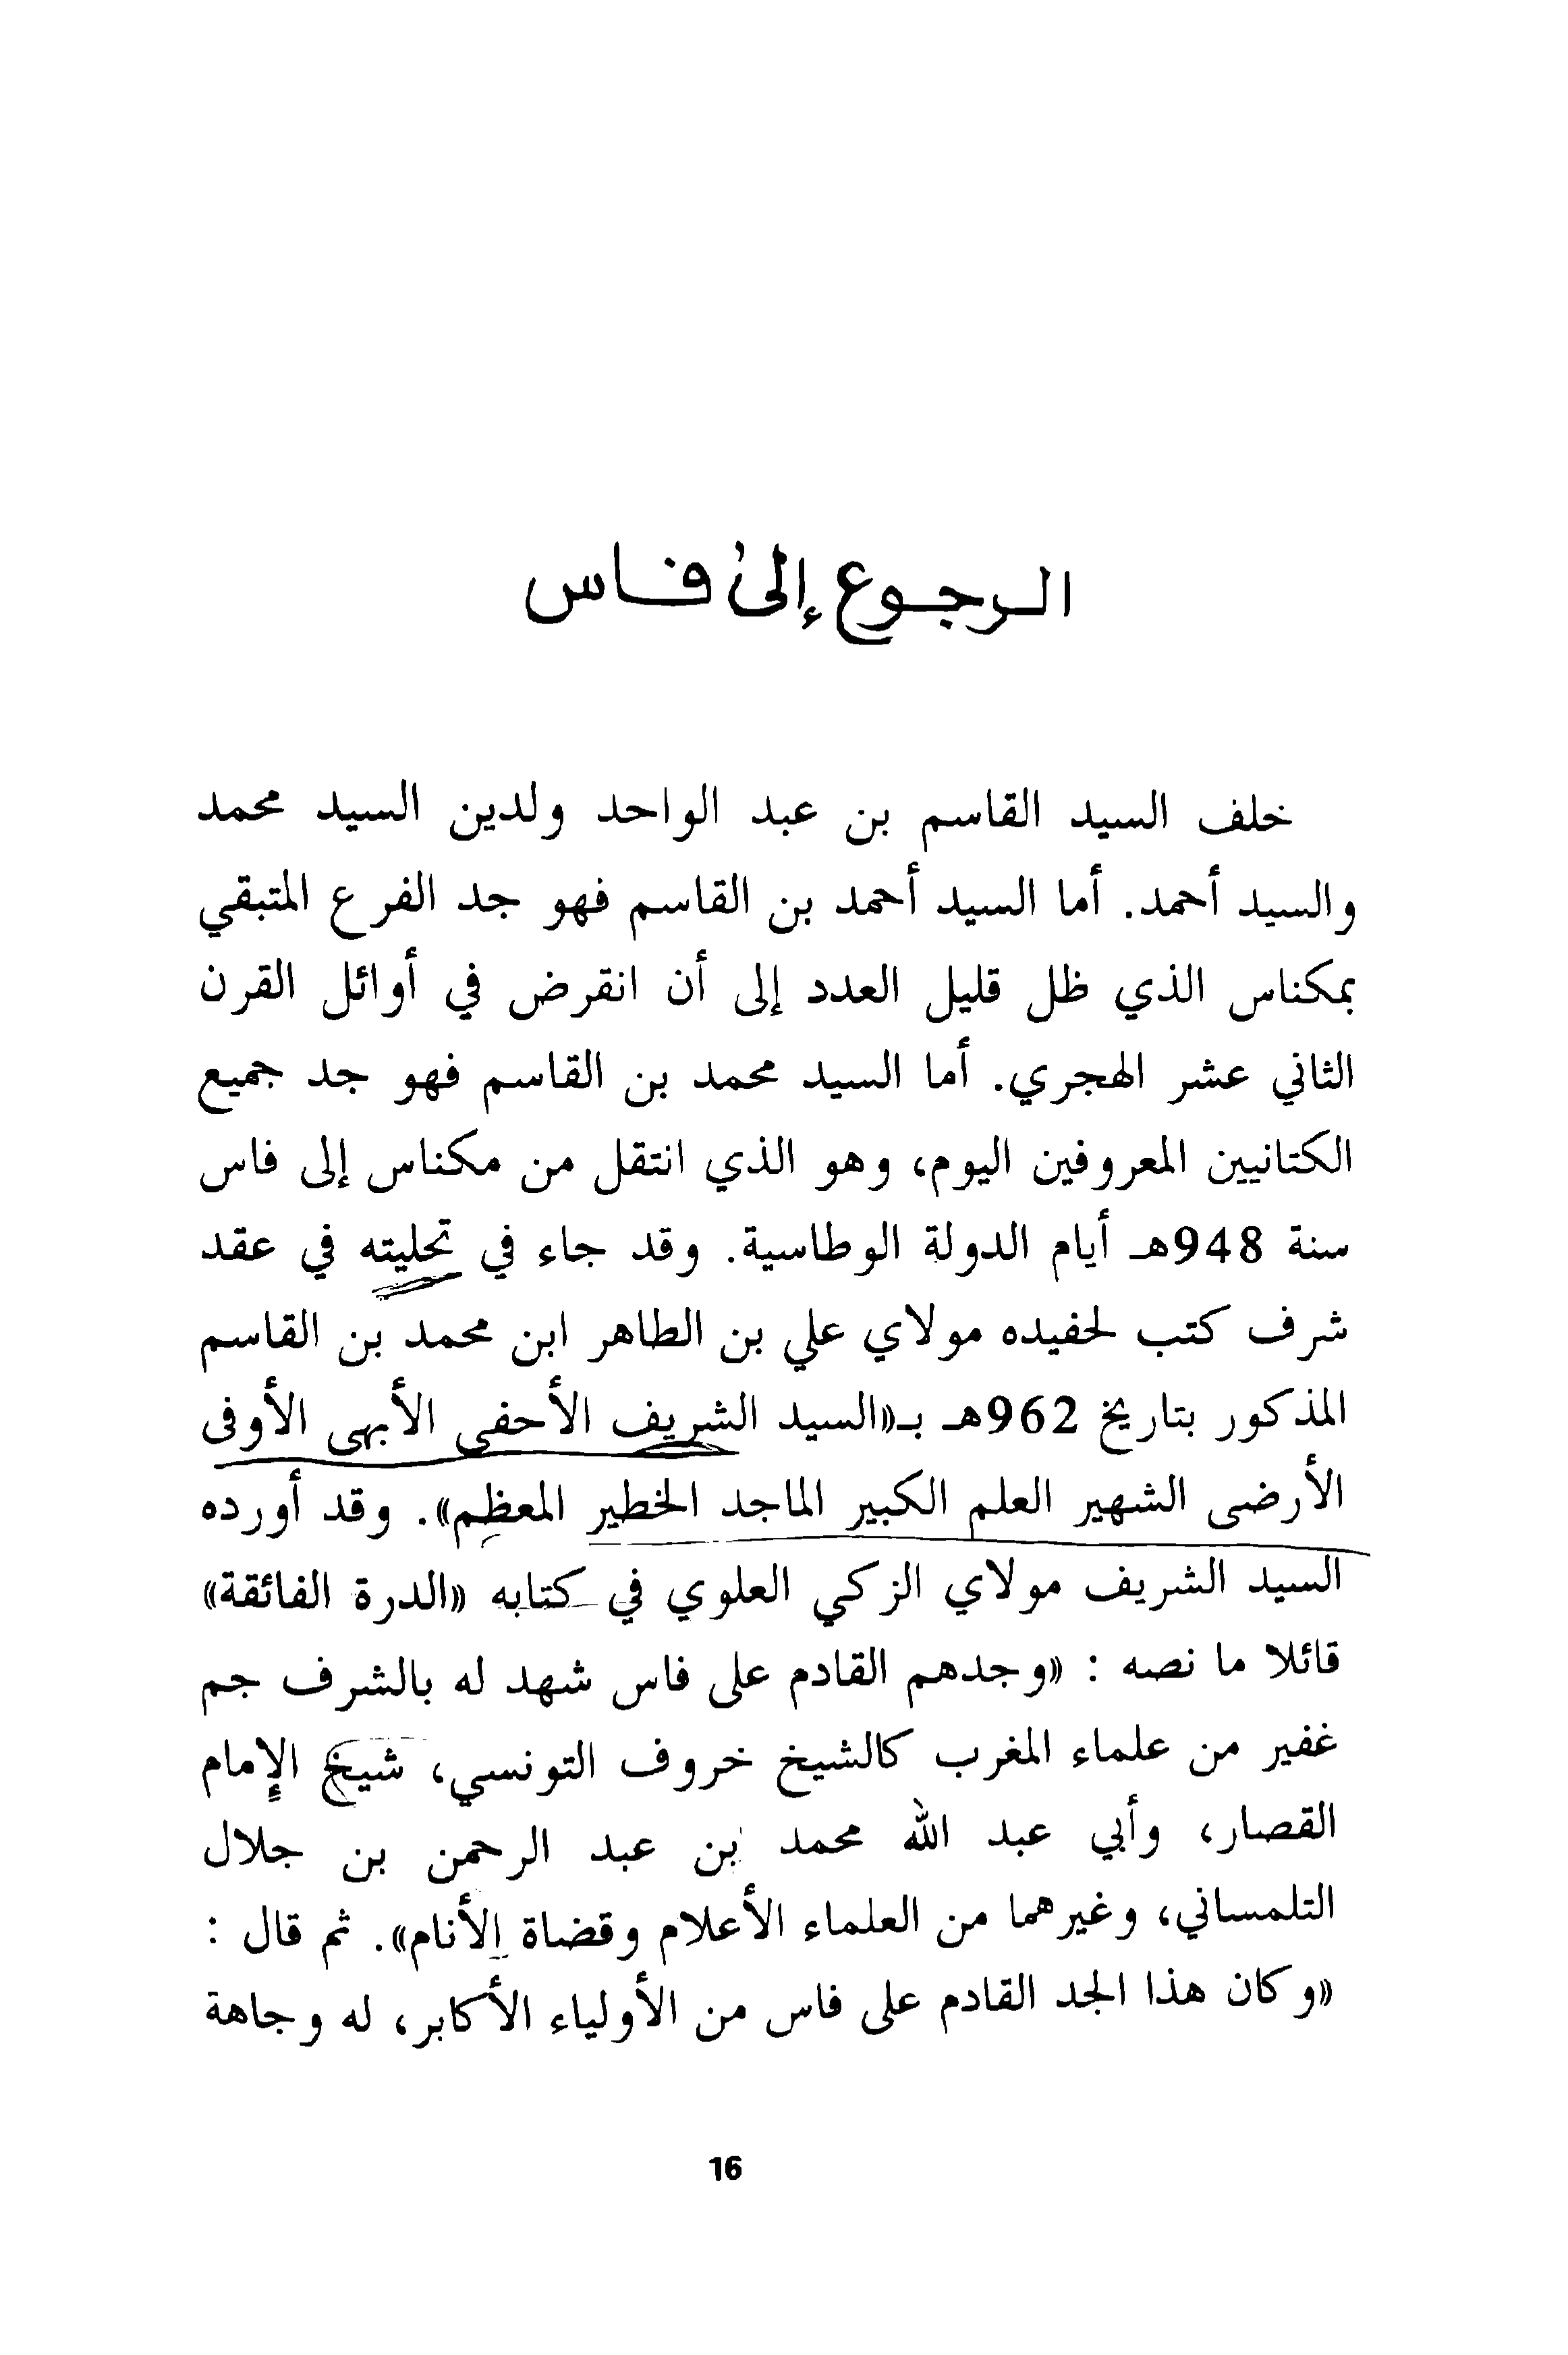 الرجوع إلى فاس
خلف السيد القاسم بن عبد الواحد ولدين السيد محمد
والسيد أحمد. أما السيد أحمد بن القاسم فهو جد الفرع المتبقي
بمكناس الذي ظل قليل العدد إلى أن انقرض في أوائل القرن
الثاني عشر الهجري. أما السيد محمد بن القاسم فهو جد جميع
الكتانيين المعروفين اليوم، وهو الذي انتقل من مكناس إلى فاس
سنة 948هـ أيام الدولة الوطاسية. وقد جاء في تحليته في عقد
شرف كتب لحفيده مولاي علي بن الطاهر ابن محمد بن القاسم
المذكور بتاريخ 962هـ بـ«السيد الشريف الأحفى الأبهى الأوفى
الأرضى الشهير العلم الكبير الماجد الخطير المعظم». وقد أورده
السيد الشريف مولاي الزكي العلوي في كتابه «الدرة الفائقة»
قائلا ما نصه : «وجدهم القادم على فاس شهد له بالشرف جم
غفير من علماء المغرب كالشيخ خروف التونسي، شيخ الإمام
القصار، وأبي عبد الله محمد بن عبد الرحمن بن جلال
التلمساني، وغيرهما من العلماء الأعلام وقضاة الأنام». ثم قال :
«وكان هذا الجد القادم على فاس من الأولياء الأكابر، له وجاهة
16